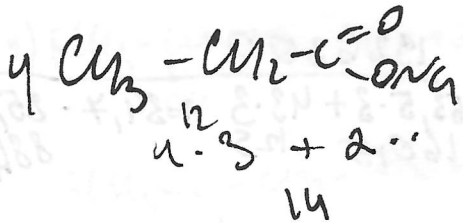 4 CH₃ – CH₂ – C =O –ONa
12
4·3 + 2··
14